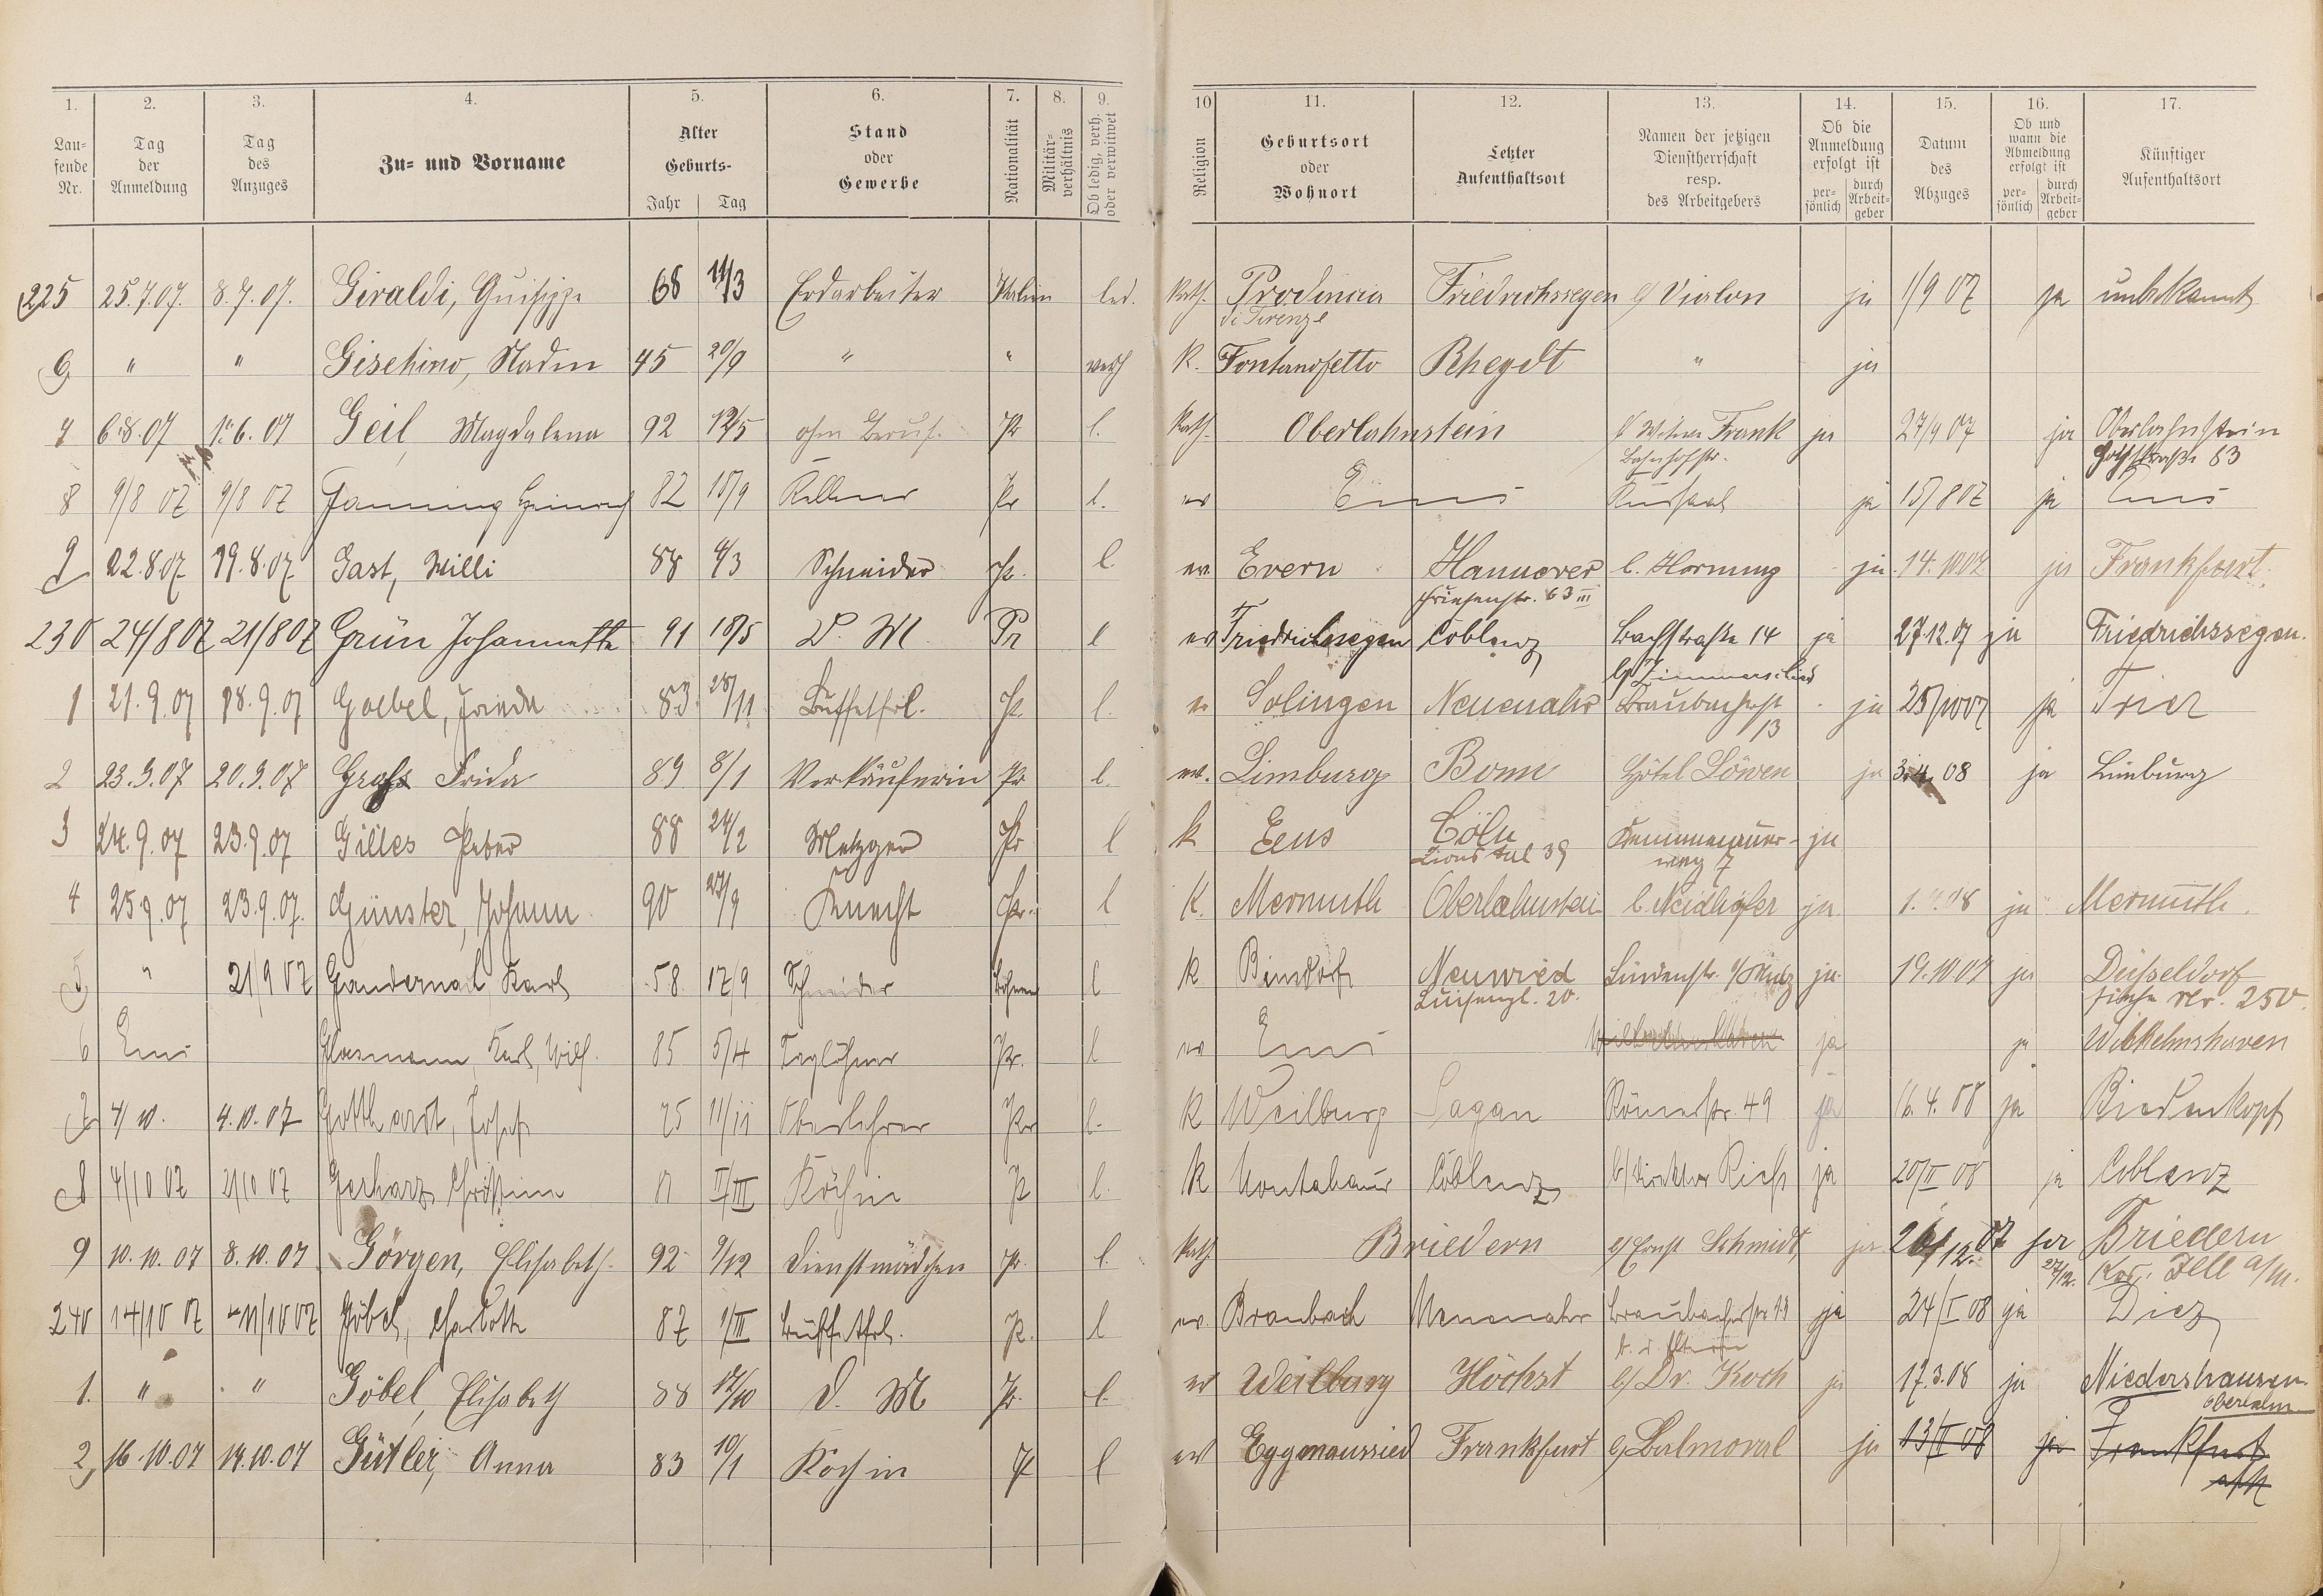 1. 2. 3. 4. 5. 6. 7. 8. 9. 10 11. 12. 13. 14. 15. 16. 17.
Lau-
fende
Nr.
Tag
der
Anmeldung
Tag
des
Anzuges
Zu- und Vorname
Alter
Geburts-
Jahr Tag
Stand
oder
Gewerbe
Nationalität
Militär-
verhältnis
Ob ledig, verh.
oder verwitwet
Religion
Geburtsort
oder
Wohnort
Letzter
Aufenthaltsort
Namen der jetzigen
Dienstherrschaft
resp.
des Arbeitgebers
Ob die
Anmeldung
erfolgt ist
per-
sönlich
durch
Arbeit-
geber
Datum
des
Abzuges
Ob und
wann die
Abmeldung
erfolgt ist
per-
sönlich
durch
Arbeit-
geber
Künftiger
Aufenthaltsort
225 25.7.07. 8.7.07. Giraldi, Guiseppe 68 11/3 Erdarbeiter Italien led. kath. Provincia Friedrichssegen b/ Vialon ja 1/9 07 ja unbekannt
di Firenze
6 " " 45 20/9 " " verh K. Rheydt " ja
7 6.8.07 1.6.07 Geil, Magdalena 92 12/5 ohne Beruf. Pr l. Kath. Oberlahnstein b/ Witwe Frank ja 27/9 07 ja Oberlahnstein
Bahnhofstr. 63
8 9/8 07 9/8 07 Heinrich 82 18/9 Kellner Pr l. ev Ems Kursaal ja 15/8 07 ja Ems
9 22.8.07 19.8.07 Gast, Willi 88 4/3 Schneider Pr. l. ev. Evern Hannover b. Hornung ja 14.10.07 ja Frankfurt.
Friesenstr. 63 III
230 24/8 07 21/8 07 Grün Johannette 91 18/5 D. M Pr l ev Friedrichssegen Coblenz Bachstraße 14 ja 27.12.07 ja Friedrichssegen.
1 21.9.07 18.9.07 Goebel, Frieda 83 28/11 Buffetfrl. Pr. l. ev Solingen Neuenahr Braubacherst ja 25/10 07 ja Trier
13
2 23.9.07 20.9.07 Groß Frida 89 8/1 Verkäuferin Pr l. ev. Limburg Bonn Hôtel Löwen ja 3.4.08 ja Limburg
3 24.9.07 23.9.07 Gilles Peter 88 24/2 Metzger Pr l k Ems Cöln Kemmenauer- ja
39 weg 7
4 25.9.07 23.9.07. Günster, Johann 90 27/9 Knecht Pr. l K. Mermuth Oberlahnstein b. Neidhöfer ja 1.4.08 ja Mermuth.
5 " 21/9 07 Karl 58 17/9 Schneider l k Neuwied Lindenstr. ja 19.10.07 ja Düsseldorf
Luisenpl. 20. siehe Nr. 250.
6 Ems Glasmann, Karl, Wilh. 85 5/4 Taglöhner Pr. l ev Ems ja ja Wilhelmshaven
7 4/10. 4.10.07 Gotthardt, Josef 75 11/11 Oberlehrer Pr l. k Weilburg Sagan Römerstr. 49 ja 16.4.08 ja Biedenkopf
8 4/10 07 2/10 07 Gerharz Christine II/III Köchin P l. k Montabaur Coblenz b/ Direktor ja 20/II 08 ja Coblenz
9 10.10.07 8.10.07 Görgen, Elisabeth. 92 9/12 Dienstmädchen Pr. l. kath Briedern b/ Ernst Schmidt ja 26/12. 07 ja Briedern
27/12. Zell a/M.
240 14/10 07 11/10 07 Göbel, Charlotte 87 1/III Buffetfrl. P. l ev. Braubach Neuenahr Braubacherstr ja 24/I 08 ja Diez
1. " " Göbel, Elisabeth 88 17/10 D. M Pr. l. ev Weilburg Höchst b/ Dr. Koch ja 17.3.08 ja Niedershausen
Oberlahn
2 16.10.07 14.10.07 Gütler, Anna 83 10/1 Köchin P l ev Eggmansried Frankfurt b/ Balmoral ja 13/II 08 ja Frankfurt
a/M